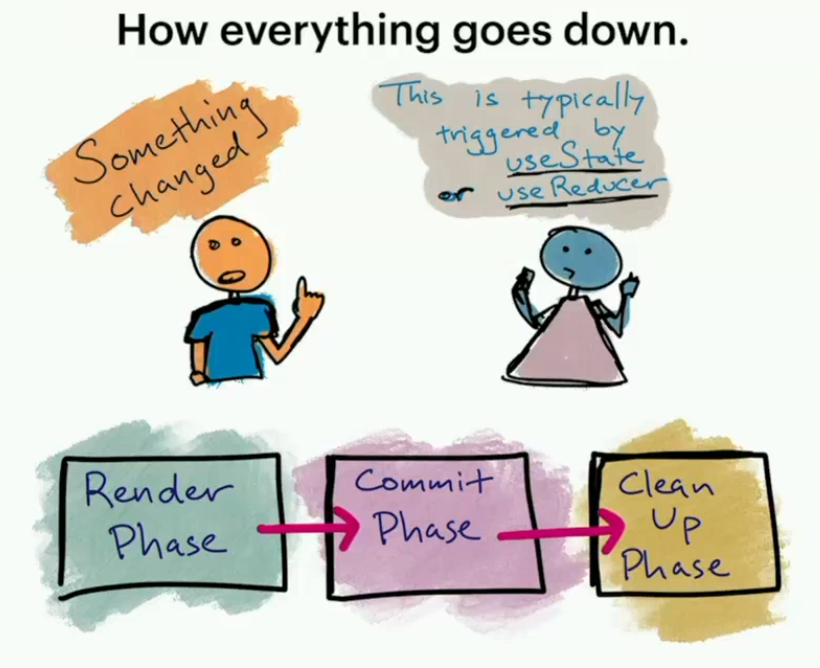 How everything goes down.
Something
changed
This is typically
triggered by
useState
or useReducer
Render
Phase
Commit
Phase
Clean
Up
Phase